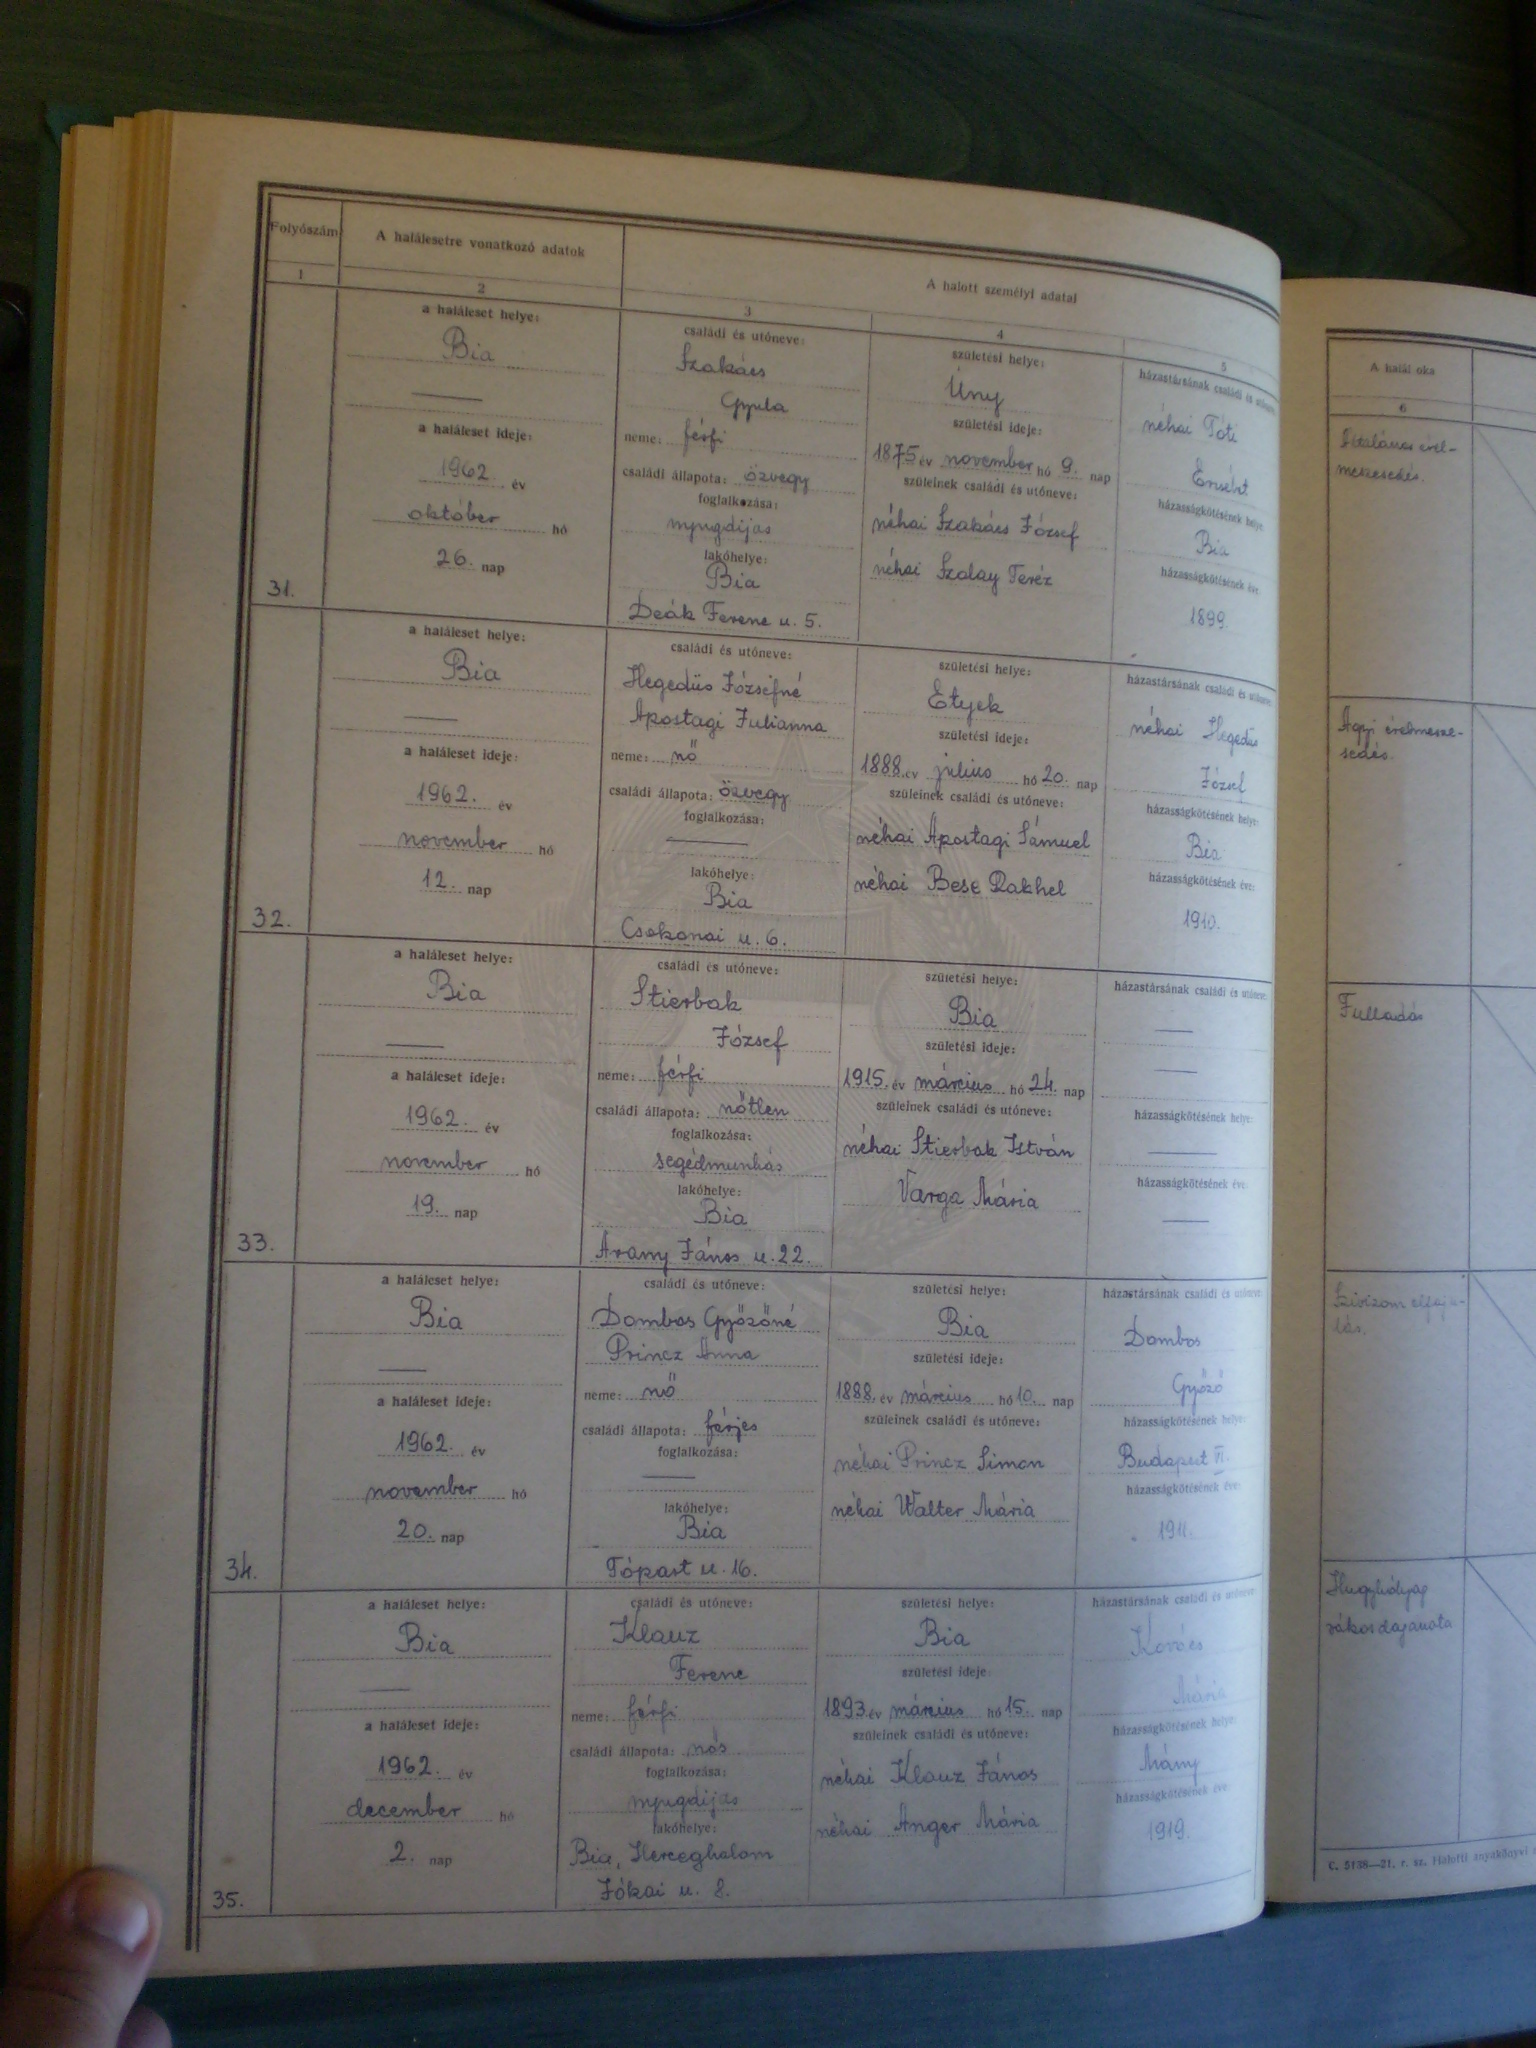 Folyószám
A halálesetre vonatkozó adatok
A halott személyi adatai
1
2
3
4
5
31.
a haláleset helye:
Bia
a haláleset ideje:
1962. év
október hó
26. nap
családi és utóneve:
Szakács
Gyula
neme: férfi
családi állapota: özvegy
foglalkozása:
nyugdijas
lakóhelye:
Bia
Deák Ferenc u. 5.
születési helye:
Úny
születési ideje:
1875 év november hó 9. nap
szüleinek családi és utóneve:
néhai Szakács József
néhai Szalay Teréz
házastársának családi és utóneve:
néhai Tóti
Erzsébet
házasságkötésének helye:
Bia
házasságkötésének éve:
1899.
32.
a haláleset helye:
Bia
a haláleset ideje:
1962. év
november hó
12. nap
családi és utóneve:
Hegedüs Józsefné
Apostagi Julianna
neme: nő
családi állapota: özvegy
foglalkozása:
lakóhelye:
Bia
Csokonai u. 6.
születési helye:
Etyek
születési ideje:
1888. év július hó 20. nap
szüleinek családi és utóneve:
néhai Apostagi Sámuel
néhai Bese Rakhel
házastársának családi és utóneve:
néhai Hegedüs
József
házasságkötésének helye:
Bia
házasságkötésének éve:
1910.
33.
a haláleset helye:
Bia
a haláleset ideje:
1962. év
november hó
19. nap
családi és utóneve:
Stierbak
József
neme: férfi
családi állapota: nőtlen
foglalkozása:
segédmunkás
lakóhelye:
Bia
Arany János u. 22.
születési helye:
Bia
születési ideje:
1915. év március hó 24. nap
szüleinek családi és utóneve:
néhai Stierbak István
Varga Mária
házastársának családi és utóneve:
házasságkötésének helye:
házasságkötésének éve:
34.
a haláleset helye:
Bia
a haláleset ideje:
1962. év
november hó
20. nap
családi és utóneve:
Dombos Győzőné
Princz Anna
neme: nő
családi állapota: férjes
foglalkozása:
lakóhelye:
Bia
Tópart u. 16.
születési helye:
Bia
születési ideje:
1888. év március hó 10. nap
szüleinek családi és utóneve:
néhai Princz Simon
néhai Walter Mária
házastársának családi és utóneve:
Dombos
Győző
házasságkötésének helye:
Budapest VI.
házasságkötésének éve:
1911.
35.
a haláleset helye:
Bia
a haláleset ideje:
1962. év
december hó
2. nap
családi és utóneve:
Klauz
Ferenc
neme: férfi
családi állapota: nős
foglalkozása:
nyugdijas
lakóhelye:
Bia, Herceghalom
Jókai u. 8.
születési helye:
Bia
születési ideje
1893. év március hó 15. nap
szüleinek családi és utóneve:
néhai Klauz János
néhai Anger Mária
házastársának családi és utóneve:
Kovács
Mária
házasságkötésének helye:
Mány
házasságkötésének éve:
1919.
A halál oka
6
Általános érel-
meszesedés.
Agyi érelmesze-
sedés.
Fulladás
Szivizom elfaju-
lás.
Hugyhólyag
rákos daganata
C. 5138—21. r. sz. Halotti anyakönyvi